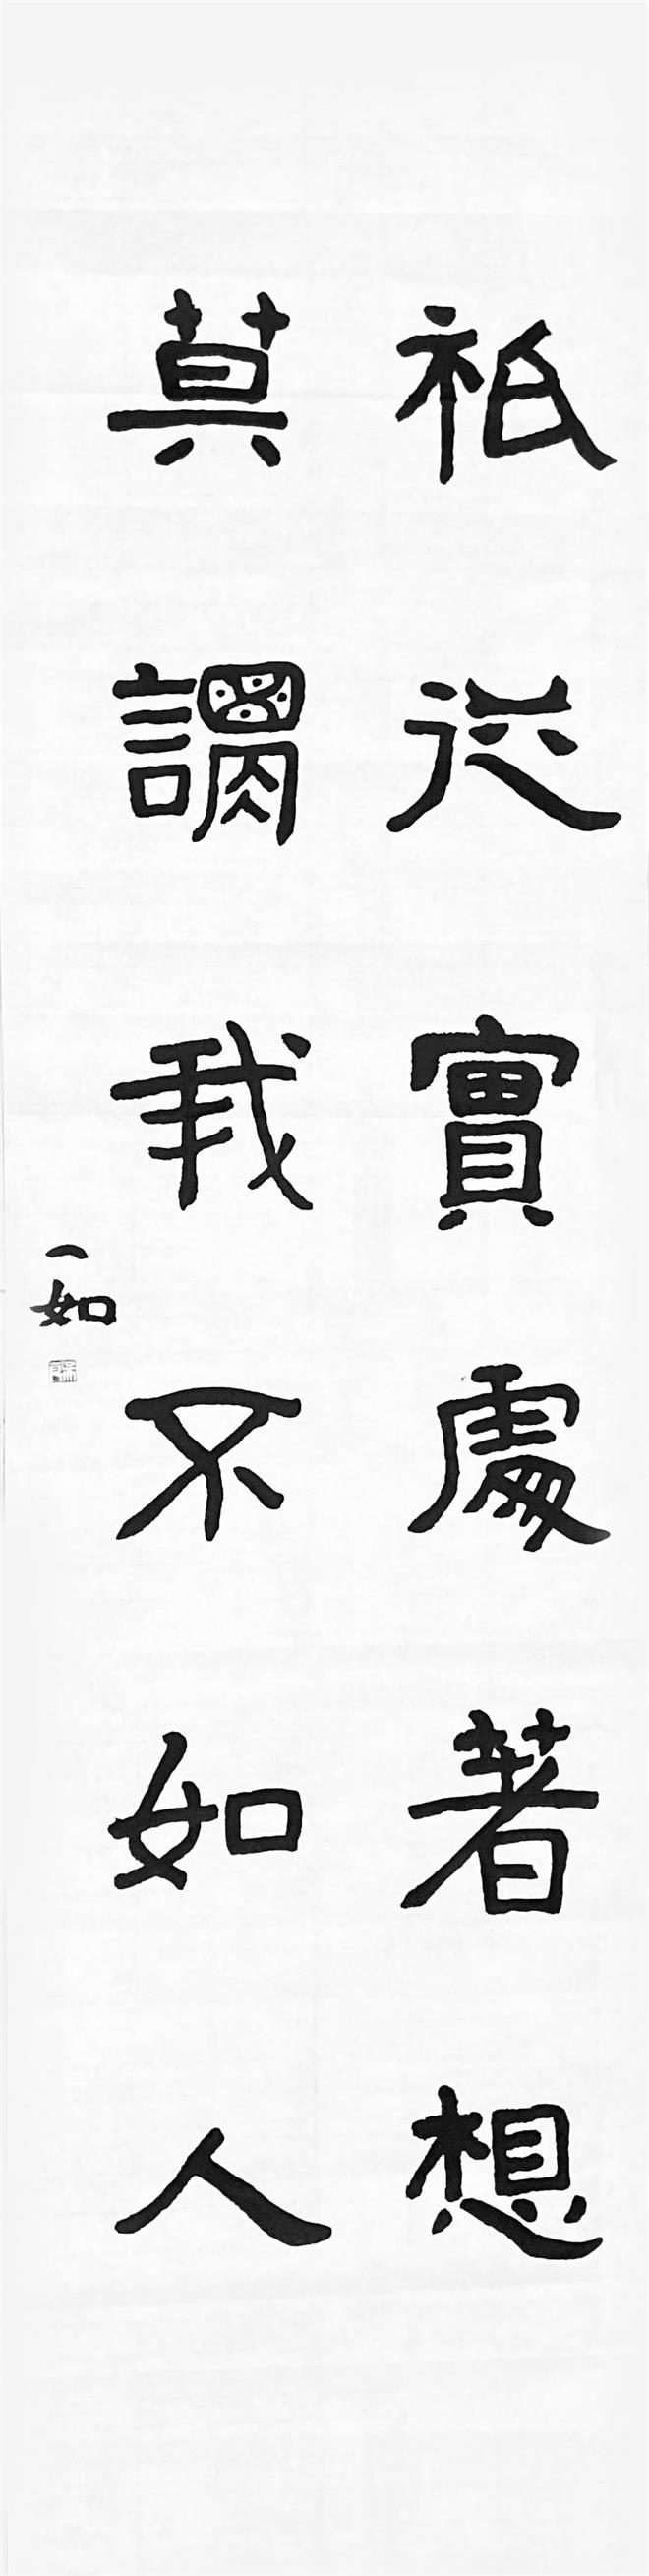 祇從實處著想
莫謂我不如人
一如